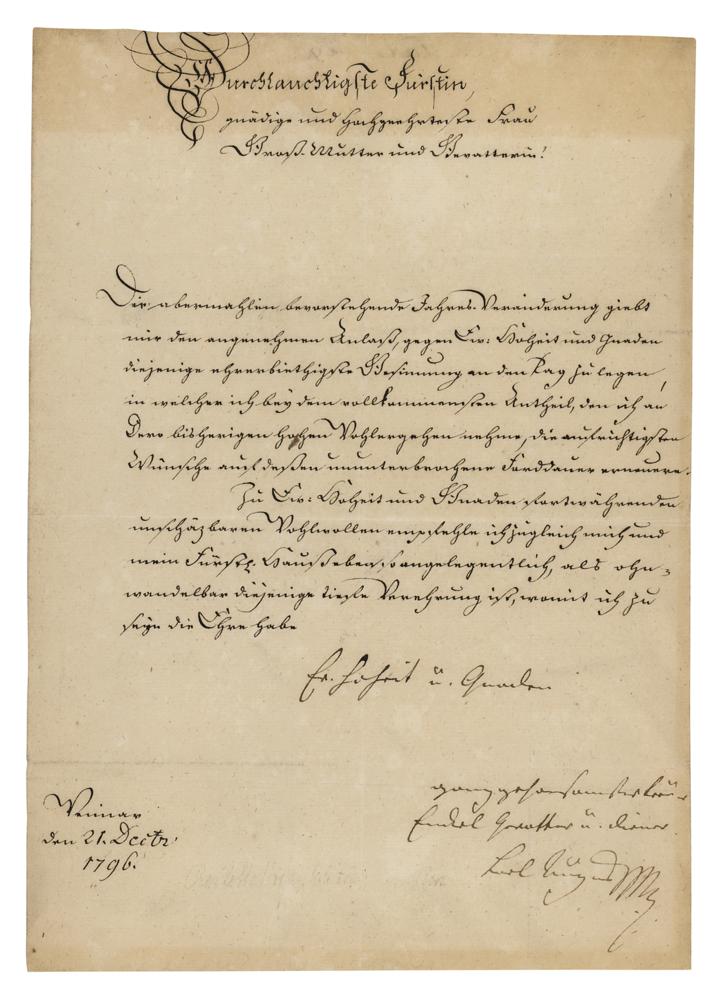 Durchlauchtigste Fürstin,
gnädige und hochgeehrteste Frau
Groß-Mutter und Gevatterin!
Die abermahlen bevorstehende Jahres-Veränderung giebt
mir den angenehmen Anlaß, gegen Ew: Hoheit und Gnaden
diejenige ehrerbiethigste Gesinnung an den Tag zu legen,
in welcher ich bey dem vollkommensten Antheil, den ich an
Dero bisherigen hohen Wohlergehen nehme, die aufrichtigsten
Wünsche auf deßen ununterbrochene Fortdauer erneuere.
Zu Ew: Hoheit und Gnaden fortwährenden
unschäzbaren Wohlwollen empfehle ich zugleich mich und
mein Fürstl. Hauß eben so angelegentlich, als ohn-
wandelbar diejenige tiefste Verehrung ist, womit ich zu
seyn die Ehre habe
Ew. Hoheit u. Gnaden
ganz gehorsamster treuer
Enkel Gevatter u. diener
Carl August
Weimar
den 21. Decbr
1796.